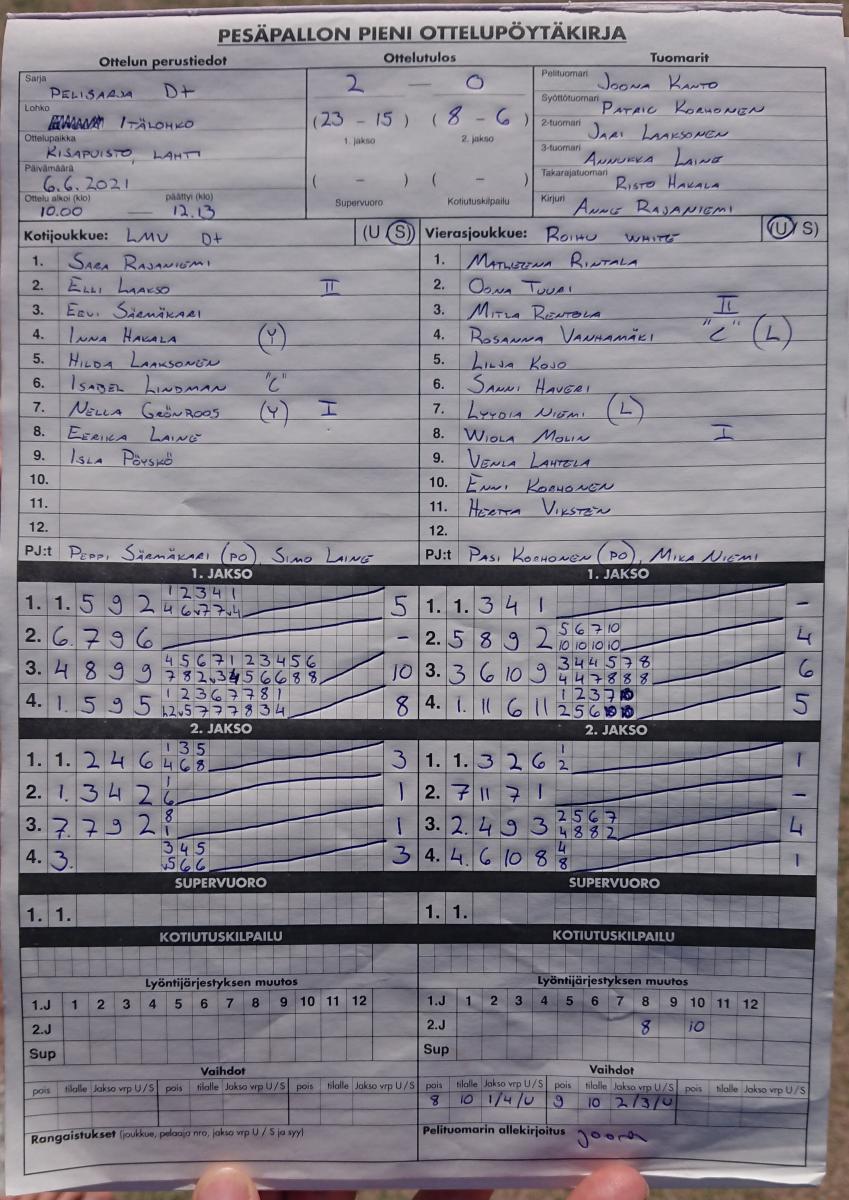 PESÄPALLON PIENI OTTELUPÖYTÄKIRJA
Ottelun perustiedot Ottelutulos Tuomarit
Sarja PELISARJA D+
Lohko ITÄLOHKO
Ottelupaikka KISAPUISTO, LAHTI
Päivämäärä 6.6.2021
Ottelu alkoi (klo) päättyi (klo)
10.00 — 12.13
2 — 0
(23 - 15) (8 - 6)
1. jakso 2. jakso
( - ) ( - )
Supervuoro Kotiutuskilpailu
Pelituomari JOONA KANTO
Syöttötuomari PATRIC KORHONEN
2-tuomari JARI LAAKSONEN
3-tuomari ANNUKKA LAINE
Takarajatuomari RISTO HAKALA
Kirjuri ANNE RAJANIEMI
Kotijoukkue: LMV D+ (U S)
1. SARA RAJANIEMI
2. ELLI LAAKSO II
3. EEVI SÄRMÄKARI
4. INNA HAKALA (Y)
5. HILDA LAAKSONEN
6. ISABEL LINDMAN "C"
7. NELLA GRÖNROOS (Y) I
8. EERIKA LAINE
9. ISLA PÖYSKÖ
10.
11.
12.
PJ:t PEPPI SÄRMÄKARI (PO), SIMO LAINE
Vierasjoukkue: ROIHU WHITE (U/S)
1. MATLEENA RINTALA
2. OONA TUURI
3. MITLA RENTOLA II
4. ROSANNA VANHAMÄKI "C" (L)
5. LILJA KOJO
6. SANNI HAVERI
7. LYYDIA NIEMI (L)
8. WIOLA MOLIN I
9. VENLA LAHTELA
10. ENNI KORHONEN
11. HERTTA VIKSTÉN
12.
PJ:t PASI KORHONEN (PO), MIKA NIEMI
1. JAKSO
1. 1. 5 9 2 1 2 3 4 1 5
4 6 v7 7 v4
2. 6. 7 9 6 -
3. 4 8 9 9 4 5 6 7 1 2 3 4 5 6 10
7 8 2 v3 4 5 6 6 8 8
4. 1. 5 9 5 1 2 3 6 7 7 8 1 8
v2 v5 7 7 7 8 3 4
2. JAKSO
1. 1. 2 4 6 1 3 5 3
4 6 8
2. 1. 3 4 2 1 1
6
3. 7. 7 9 2 8 1
1
4. 3. 3 4 5 3
v5 6 6
SUPERVUORO
1. 1.
KOTIUTUSKILPAILU
1. JAKSO
1. 1. 3 4 1 -
2. 5 8 9 2 5 6 7 10 4
10 10 10 10
3. 3 6 10 9 3 4 4 5 7 8 6
4 4 7 8 8 8
4. 1. 11 6 11 1 2 3 7 10 5
2 5 6 10 10
2. JAKSO
1. 1. 3 2 6 1 1
2
2. 7 11 7 1 -
3. 2. 4 9 3 2 5 6 7 4
4 8 8 2
4. 4. 6 10 8 4 1
8
SUPERVUORO
1. 1.
KOTIUTUSKILPAILU
Lyöntijärjestyksen muutos
1.J 1 2 3 4 5 6 7 8 9 10 11 12
2.J
Sup
Vaihdot
pois tilalle Jakso vrp U/S pois tilalle Jakso vrp U/S pois tilalle Jakso vrp U/S
Rangaistukset (joukkue, pelaaja nro, jakso vrp U / S ja syy)
Lyöntijärjestyksen muutos
1.J 1 2 3 4 5 6 7 8 9 10 11 12
2.J 8 10
Sup
Vaihdot
pois tilalle Jakso vrp U/S pois tilalle Jakso vrp U/S pois tilalle Jakso vrp U/S
8 10 1/4/U 9 10 2/3/U
Pelituomarin allekirjoitus Joona